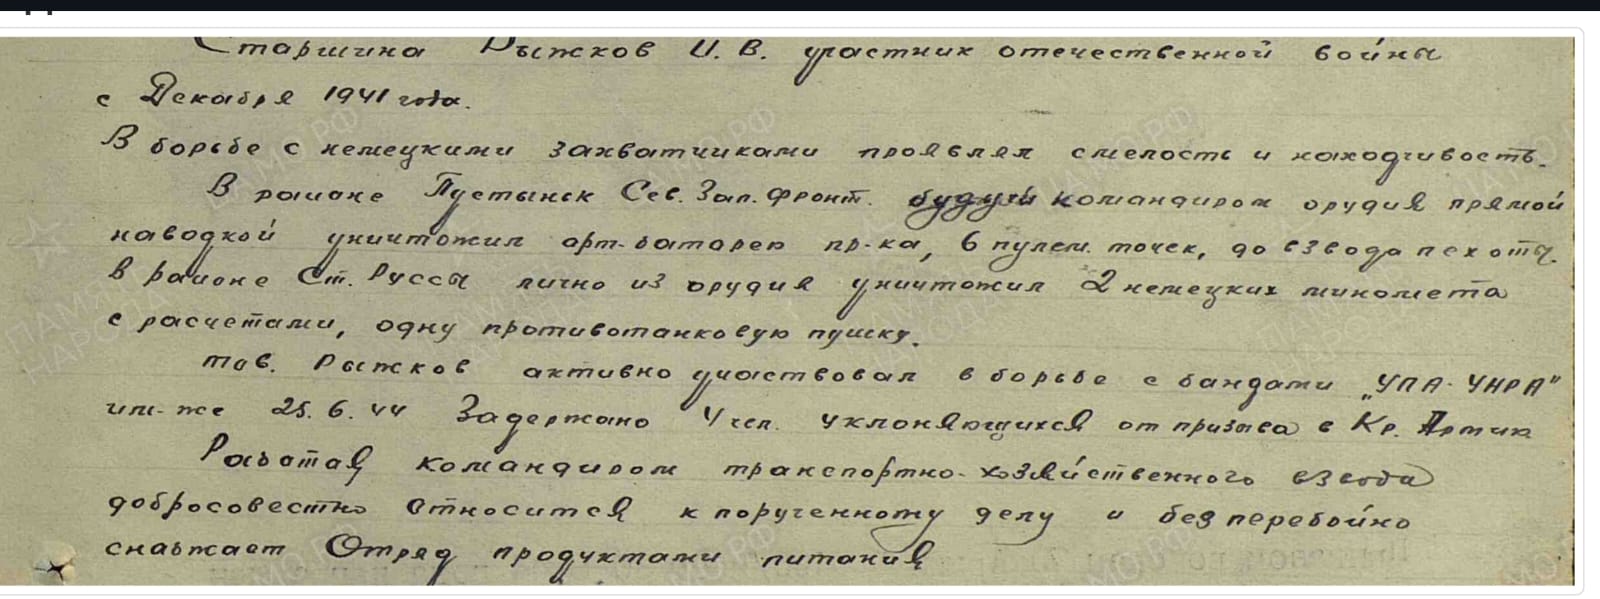 Старшина Рыжков И. В. участник отечественной войны
с Декабря 1941 года.
В борьбе с немецкими захватчиками проявлял смелость и находчивость.
В районе Пустынск Сев. Зап. Фронт. будучи командиром орудия прямой
наводкой уничтожил арт-батарею пр-ка, 6 пулем. точек, до взвода пехоты.
В районе Ст. Руссы лично из орудия уничтожил 2 немецких миномета
с расчетами, одну противотанковую пушку.
тов. Рыжков активно участвовал в борьбе с бандами „УПА-УНРА"
им-же 25. 6. 44 Задержано 4 чел. уклоняющихся от призыва в Кр. Армию
Работая командиром транспортно-хозяйственного взвода
добросовестно Относится к порученному делу и без перебойно
снабжает Отряд продуктами питания
ПАМЯТЬ НАРОДА